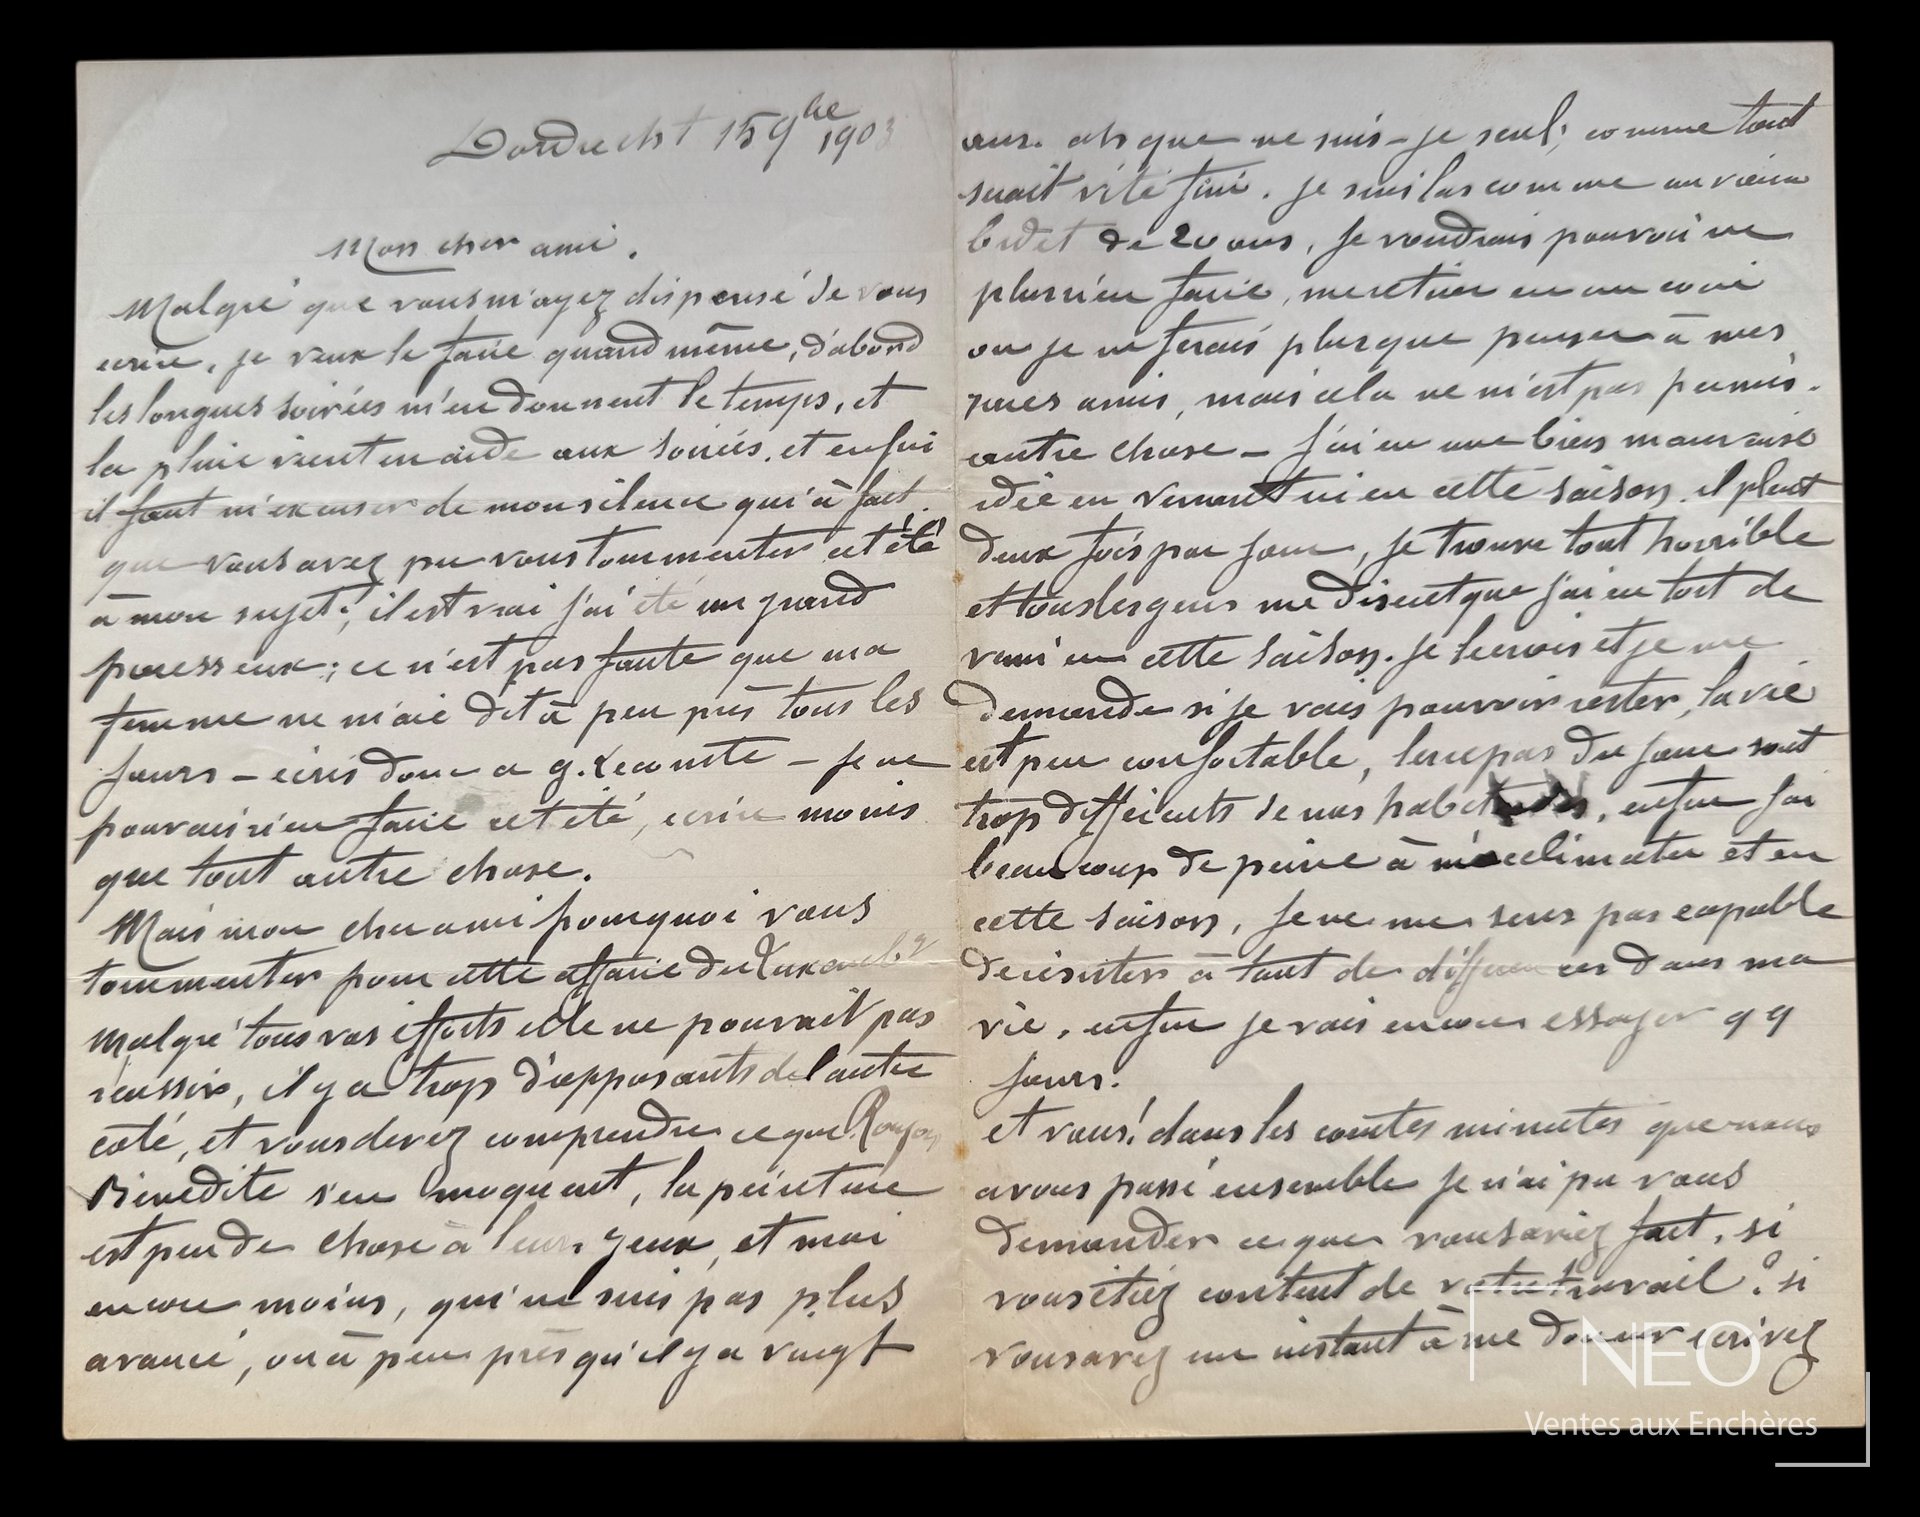 Dordrecht 15 9bre 1903
Mon cher ami.
Malgré que vous m'ayez dispensé de vous
ecrire, je veux le faire quand même, d'abord
les longues soirées m'en donnent le temps, et
la pluie vient en aide aux soirées. et enfin
il faut m'excuser de mon silence qui à fait
que vous avez pu vous tourmenter cet été
à mon sujet; il est vrai j'ai été un grand
paresseux; ce n'est pas faute que ma
femme ne m'aie dit à peu près tous les
jours – ecris donc a G. Lecomte – je ne
pouvais rien faire cet été, ecrire moins
que tout autre chose.
Mais mon cher ami pourquoi vous
tourmenter pour cette affaire du Luxembg
Malgré tous vos efforts elle ne pouvait pas
réussir, il y a trop d'opposants de l'autre
coté, et vous devez comprendre ce que Roujon
Bénédite s'en moquent, la peinture
est peu de chose à leurs yeux, et moi
encore moins, qui ne suis pas plus
avancé, ou à peu près qu'il y a vingt
ans. ah que ne suis-je seul; comme tout
serait vite fini. je suis las comme un vieux
bidet de 20 ans, je voudrais pouvoir ne
plus rien faire, me retirer en un coin
ou je ne ferais plus que penser à mes
rares amis, mais cela ne m'est pas permis.
autre chose – j'ai eu une bien mauvaise
idée en venant ici en cette saison. il pleut
deux fois par jour, je trouve tout horrible
et tous les gens me disent que j'ai eu tort de
venir en cette saison. je le crois et je me
demande si je vais pouvoir rester, la vie
est peu confortable, les repas du jour sont
trop différents de nos habitudes, enfin j'ai
beaucoup de peine à m'acclimater et en
cette saison, je ne me sens pas capable
de résister à tant de différences dans ma
vie, enfin je vais encore essayer qq
jours.
et vous! dans les courtes minutes que nous
avons passé ensemble je n'ai pu vous
demander ce que vous aviez fait, si
vous étiez content de votre travail? si
vous avez un instant à me donner ecrivez
NEO
Ventes aux Enchères